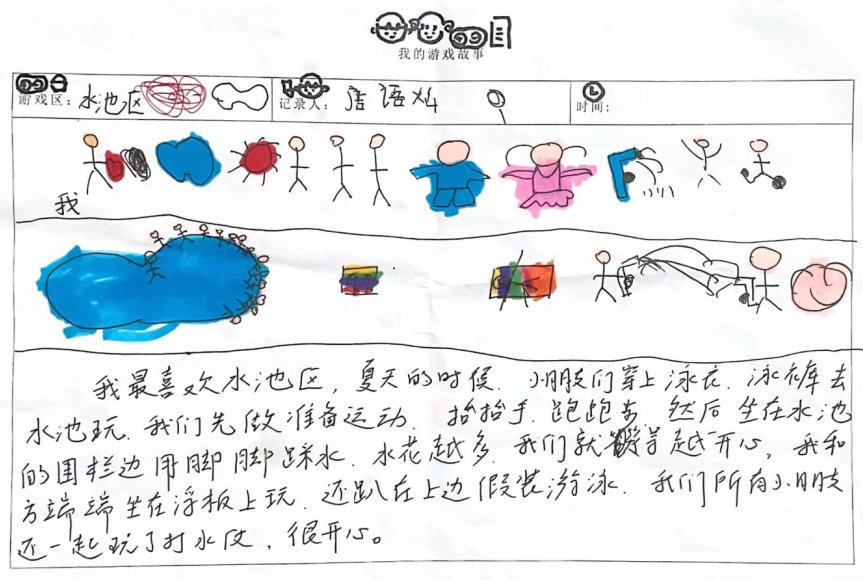 我的游戏故事
游戏区：水池区
记录人：唐语灿
时间：
我
我最喜欢水池区，夏天的时候．小朋友们穿上泳衣．泳裤去
水池玩．我们先做准备运动．抬抬手．跑跑步．然后坐在水池
的围栏边用脚脚踩水．水花越多．我们就越开心，我和
方端端坐在浮板上玩．还趴在上边假装游泳．我们所有小朋友
还一起玩了打水仗，很开心。